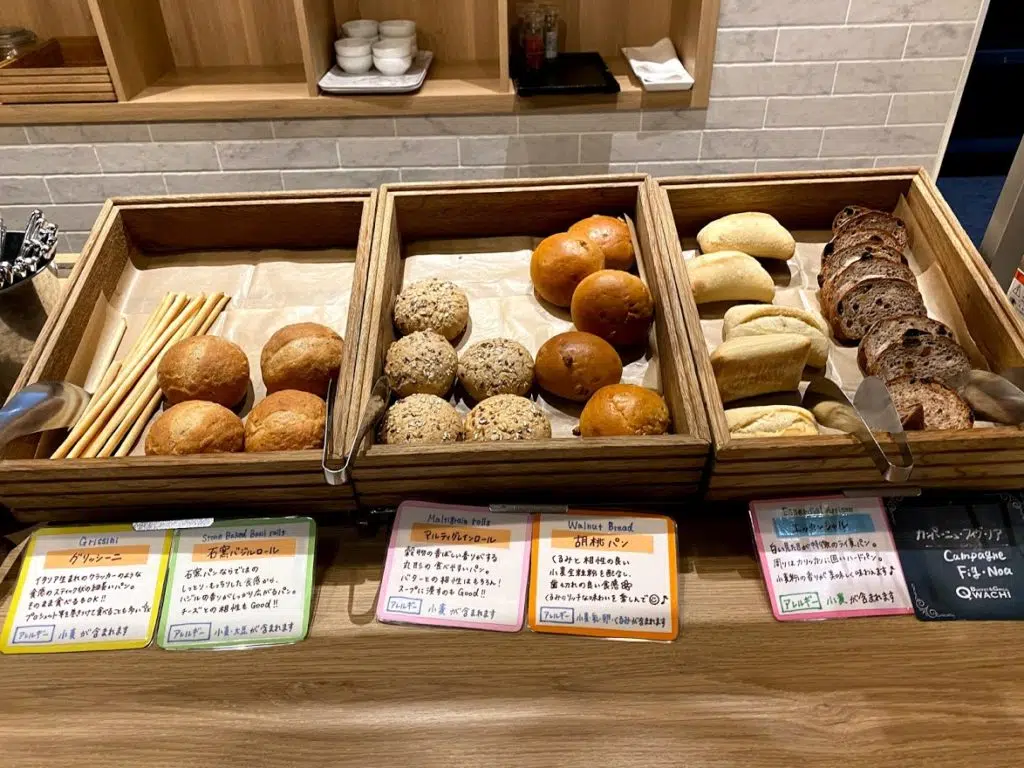 Grissini
グリッシーニ
イタリア生まれのクラッカーのような
食感のスティック状の細長いパン。
そのまま食べるもOK!!
プロシュート等を巻きつけて食べることも多いです
アレルギー 小麦が含まれます
Stone Baked Basil rolls
石窯バジルロール
石窯パンならではの
しっとり・もっちりした食感から、
バジルの香りがしっかり広がるパン。
チーズとの相性もGood!!
アレルギー 小麦・大豆が含まれます
Multigrain rolls
マルティグレインロール
穀物の香ばしい香りがする
丸型の食べやすいパン。
バターとの相性はもちろん!
スープに浸すもGood!!
アレルギー 小麦が含まれます
Walnut Bread
胡桃パン
くるみと相性の良い
小麦全粒粉を配合し、
歯切れの良い食感
くるみのリッチな味わいを楽しんで♪
アレルギー 小麦・乳・卵・くるみが含まれます
Essential Artisan
エッセンシャル
白い見た目が特徴のライ麦パン。
周りはカリッカリに固いハードパン。
小麦粉の香りが芳ばしく味わえます♪
アレルギー 小麦が含まれます
カンパーニュ・フィグ・ノア
Campagne
Fig・Noa
QWACHI